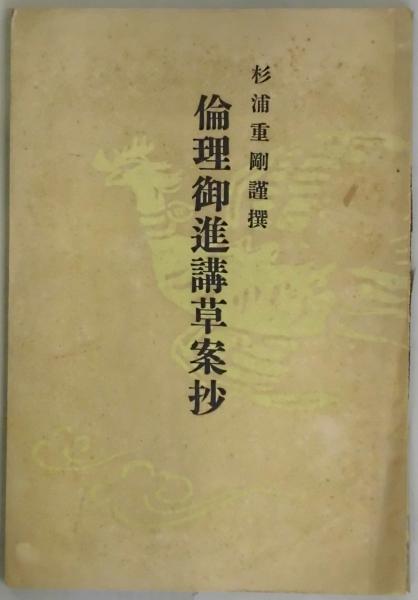 杉浦重剛謹撰
倫理御進講草案抄